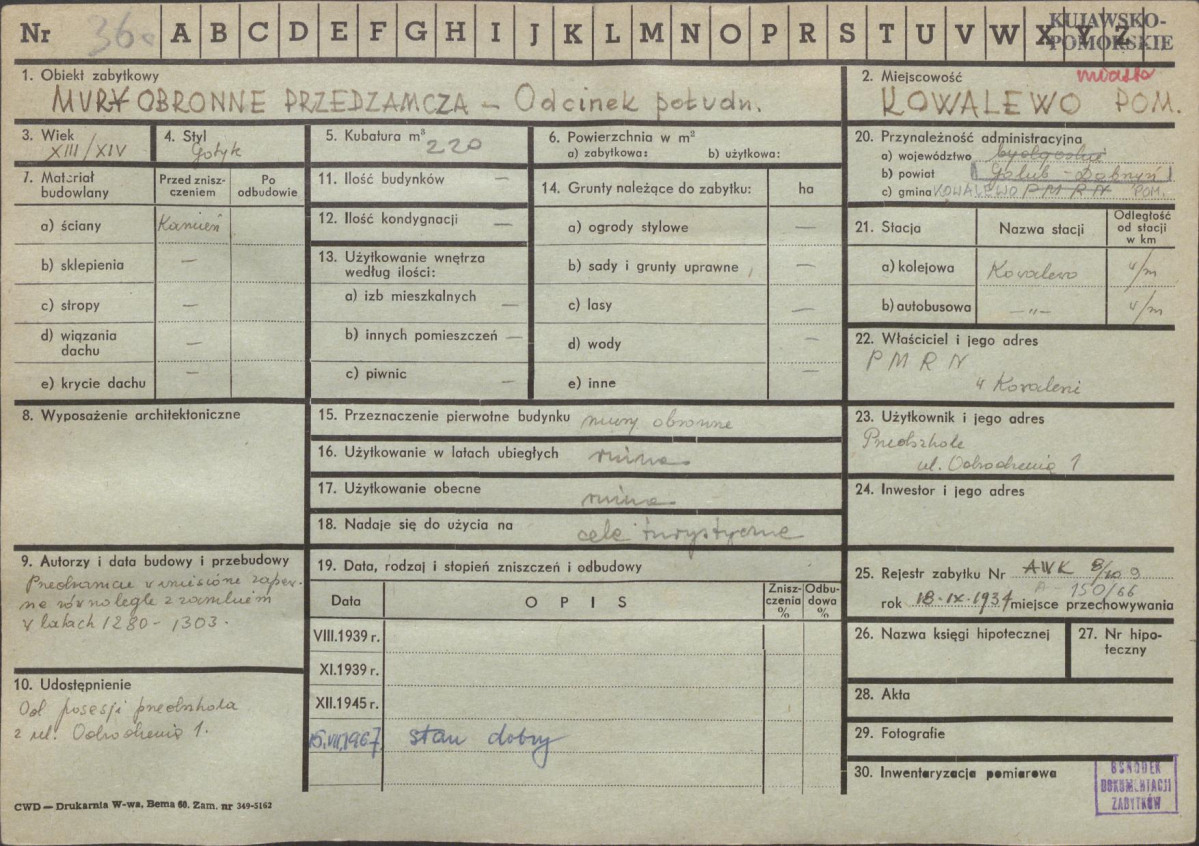 Nr 36 A B C D E F G H I J K L M N O P R S T U V W X Y Z
KUJAWSKO-
POMORSKIE
1. Obiekt zabytkowy
MURY OBRONNE PRZEDZAMCZA – Odcinek połudn.
2. Miejscowość miasto
KOWALEWO POM.
3. Wiek
XIII/XIV
4. Styl
Gotyk
5. Kubatura m³
220
6. Powierzchnia w m²
a) zabytkowa: b) użytkowa:
7. Materiał
budowlany
Przed znisz-
czeniem
Po
odbudowie
a) ściany Kamień
b) sklepienia —
c) stropy —
d) wiązania
dachu —
e) krycie dachu —
8. Wyposażenie architektoniczne
9. Autorzy i data budowy i przebudowy
Przedzamcze wzniesione zapew-
ne równolegle z zamkiem
w latach 1280 - 1303.
10. Udostępnienie
Od posesji przedszkola
z ul. Odrodzenia 1.
CWD — Drukarnia W-wa, Bema 60. Zam. nr 349-5162
11. Ilość budynków —
12. Ilość kondygnacji —
13. Użytkowanie wnętrza
według ilości:
a) izb mieszkalnych —
b) innych pomieszczeń —
c) piwnic —
14. Grunty należące do zabytku: ha
a) ogrody stylowe —
b) sady i grunty uprawne —
c) lasy —
d) wody —
e) inne —
15. Przeznaczenie pierwotne budynku mury obronne
16. Użytkowanie w latach ubiegłych ruina
17. Użytkowanie obecne ruina
18. Nadaje się do użycia na cele turystyczne
19. Data, rodzaj i stopień zniszczeń i odbudowy
Data
OPIS
Znisz-
czenia
%
Odbu-
dowa
%
VIII.1939 r.
XI.1939 r.
XII.1945 r.
15.VII.1967 stan dobry
20. Przynależność administracyjna
a) województwo bydgoskie
b) powiat Golub-Dobrzyń
c) gmina KOWALEWO PMRN POM.
21. Stacja
Nazwa stacji
Odległość
od stacji
w km
a) kolejowa Kowalewo w/m
b) autobusowa —"— w/m
22. Właściciel i jego adres
PMRN
w Kowalewie
23. Użytkownik i jego adres
Przedszkole
ul. Odrodzenia 1
24. Inwestor i jego adres
25. Rejestr zabytku Nr AWK
A-150/66
rok 18.IX.1934 miejsce przechowywania
26. Nazwa księgi hipotecznej
27. Nr hipo-
teczny
28. Akta
29. Fotografie
30. Inwentaryzacja pomiarowa
OŚRODEK
DOKUMENTACJI
ZABYTKÓW